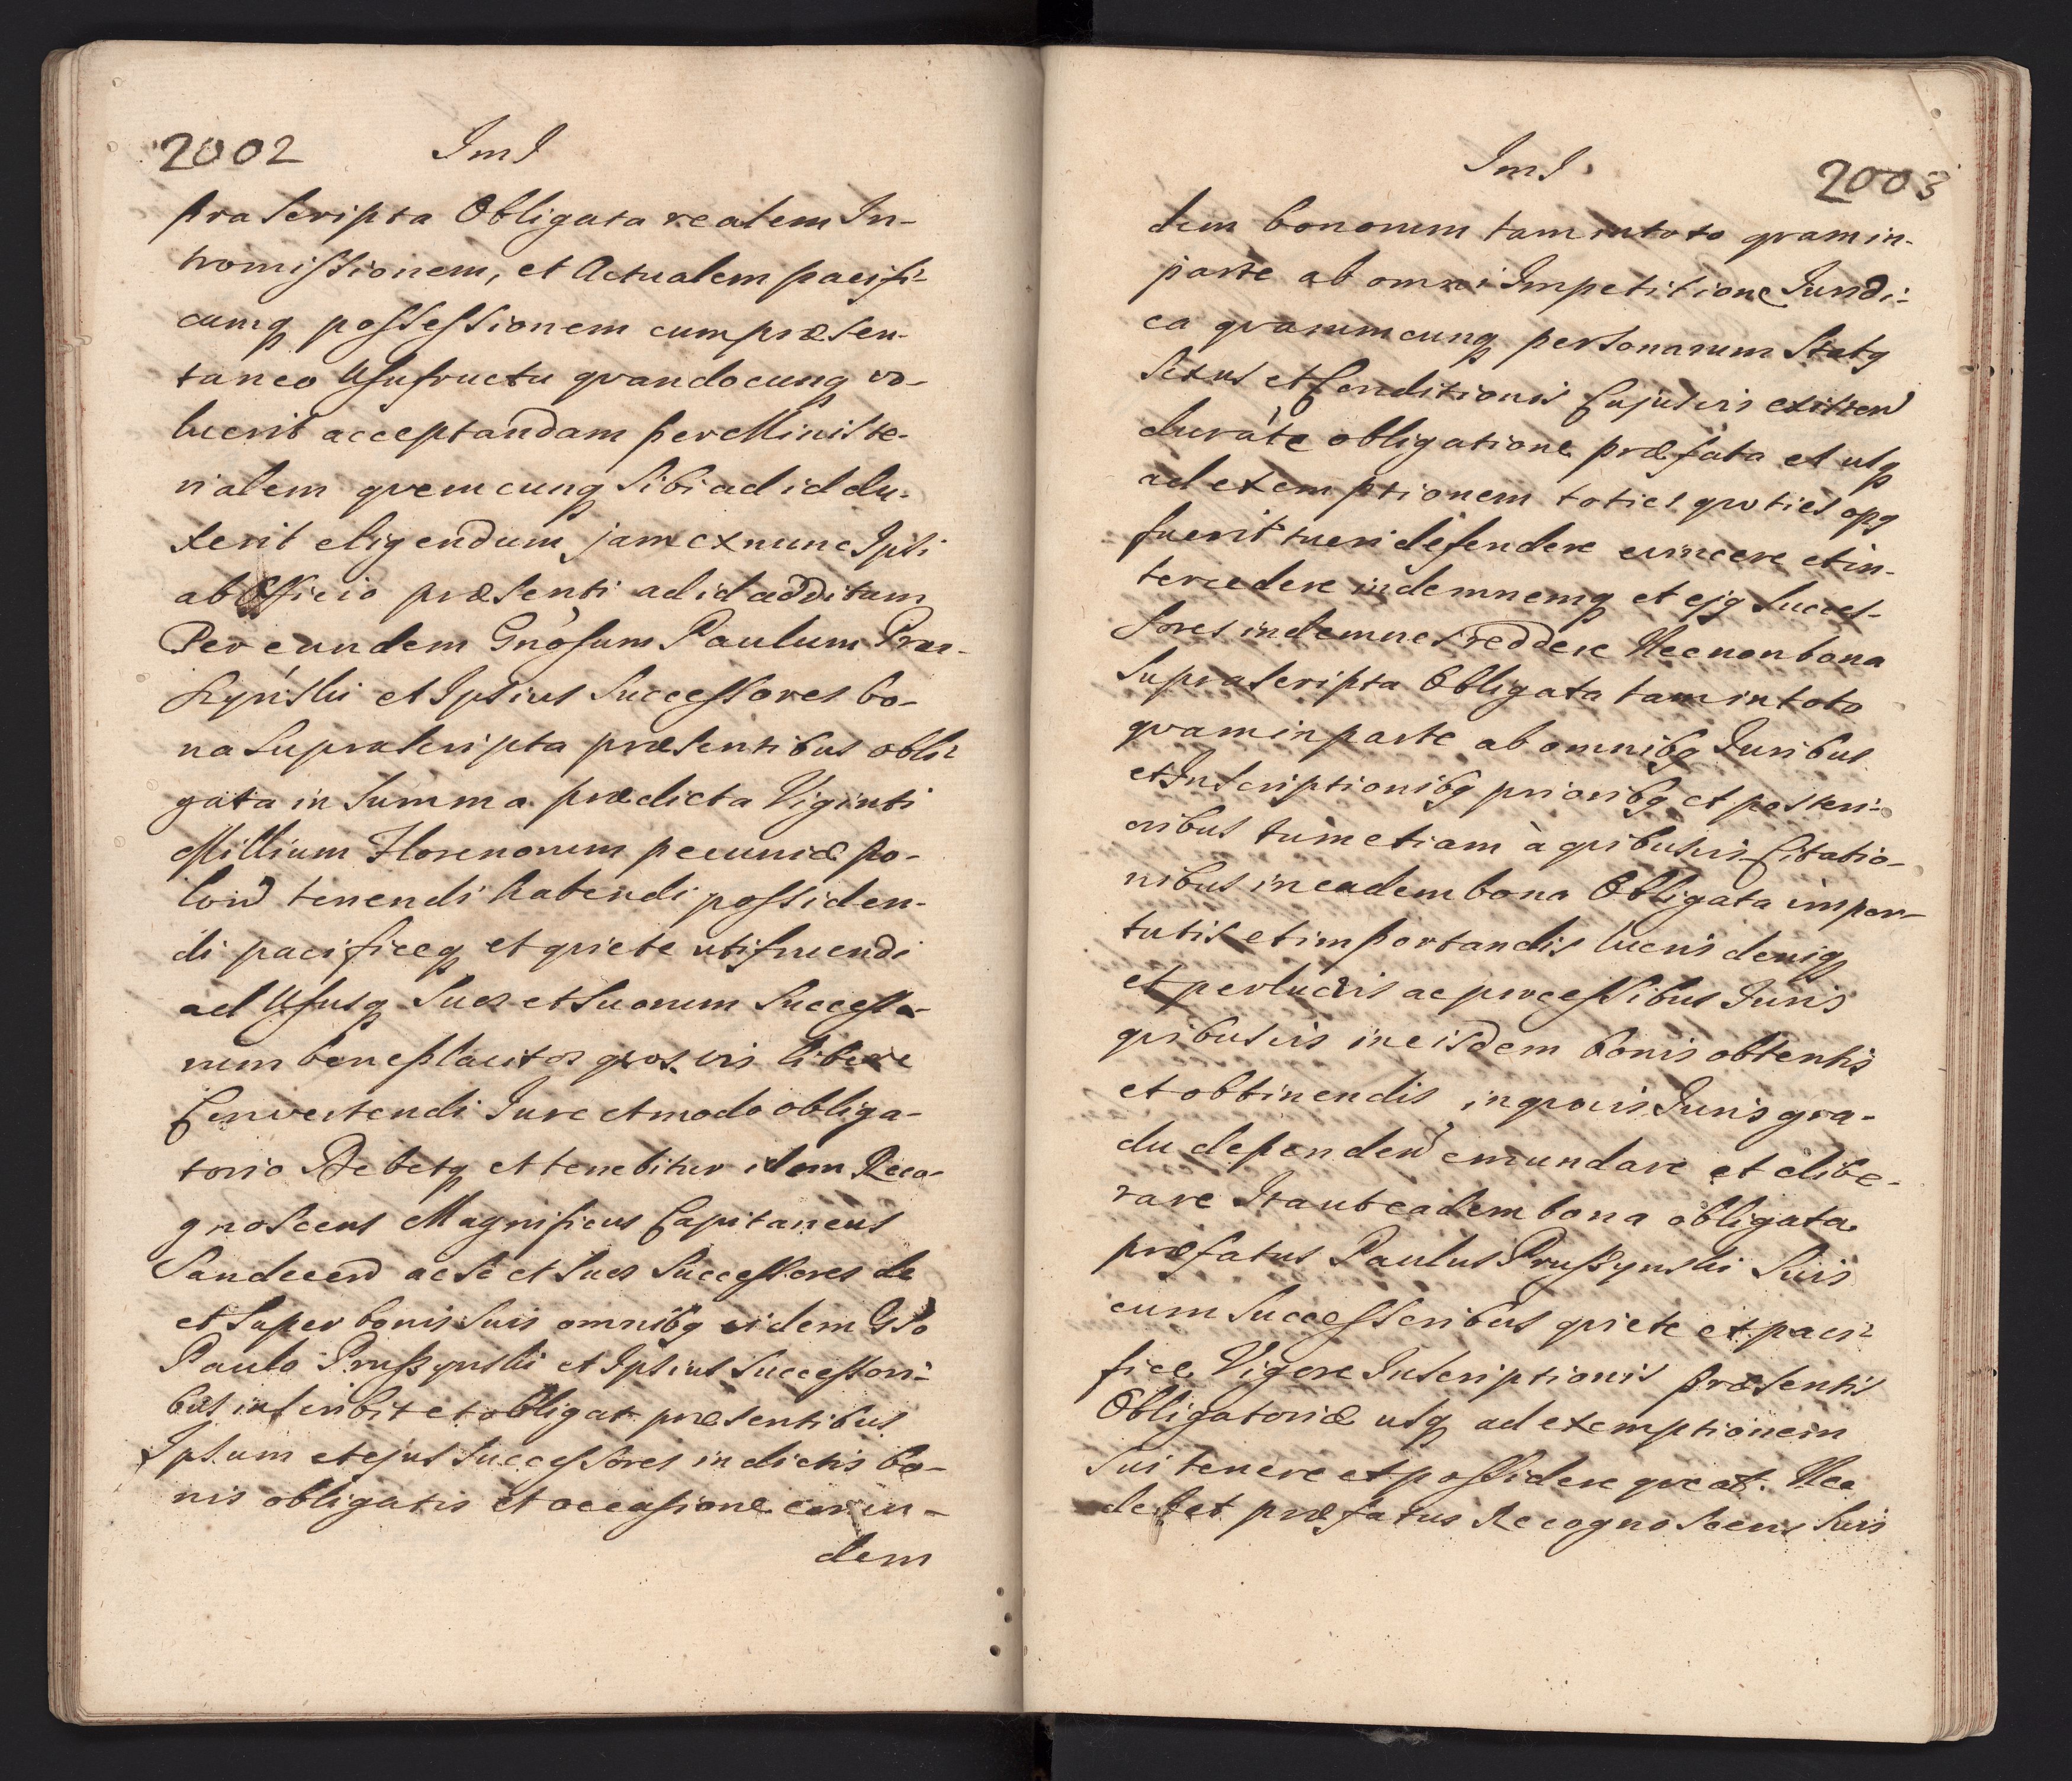 2002 ImI
pra Scripta Obligata realem In-
tromissionem, et Actualem pacifi-
cumq possessionem cum præsen-
taneo Usufructu qvandocunq vo-
luerit acceptandam per Ministe-
rialem qvemcunq Sibi ad id du-
xerit eligendum jam ex nunc Ipsi
ab Officio præsenti ad id additam
Per eundem Gnosum Paulum Prus-
Kyński et Ipsius Successores bo-
na Suprascripta præsentibus obli-
gata in Summa prædicta Viginti
Millium Florenorum pecuniæ Po-
lond tenendi habendi possiden-
di pacificeq et qviete utifruendi
ad Ususq Suos et Suorum Successo-
rum beneplacitos qvos. vis libere
Convertendi Jure et modo obliga-
torio Debetq et tenebitur idem Reco-
gnoscens Magnificus Capitaneus
Sandecend ac Se et Suos Successores de
et Super bonis Suis omnibq eidem Gso
Paulo Prußynski et Ipsius Successori-
bus inscribit et obligat præsentibus
Ipsum et ejus Successores in dictis bo-
nis obligatis et occasione eorun-
dem
ImI 2003
dem bonorum tam in toto qvam in-
parte ab omni Impetitione Juridi-
ca qvarumcunq personarum Statq
Sexus et Conditionis Cujusvis existen
durate obligatione præfata et usq
ad exemptionem toties qvoties opq
fuerit tueri defendere evincere et in-
tercedere indemnemq et ejq Succes-
sores indemnes reddere Necnon bona
Suprascripta Obligata tam in toto
qvam in parte ab omnibq Juribus
et Inscriptionibq prioribq et posteri-
oribus tum etiam à qvibusvis Citatio-
nibus in eadem bona Obligata impor-
tatis et importandis lucris deniq
et perlucris ac processibus Juris
qvibusvis in eisdem bonis obtentis
et obtinendis in qvovis Juris gra-
du dependen emundare et elibe-
rare Ita ut eadem bona obligata
præfatus Paulus Prußynski Suis
cum Successoribus qviete et paci-
fice Vigore Inscriptionis præsentis
Obligatoriæ usq ad exemptionem
Sui tenere et possidere qveat. Nec
debet præfatus Recognoscens Suis